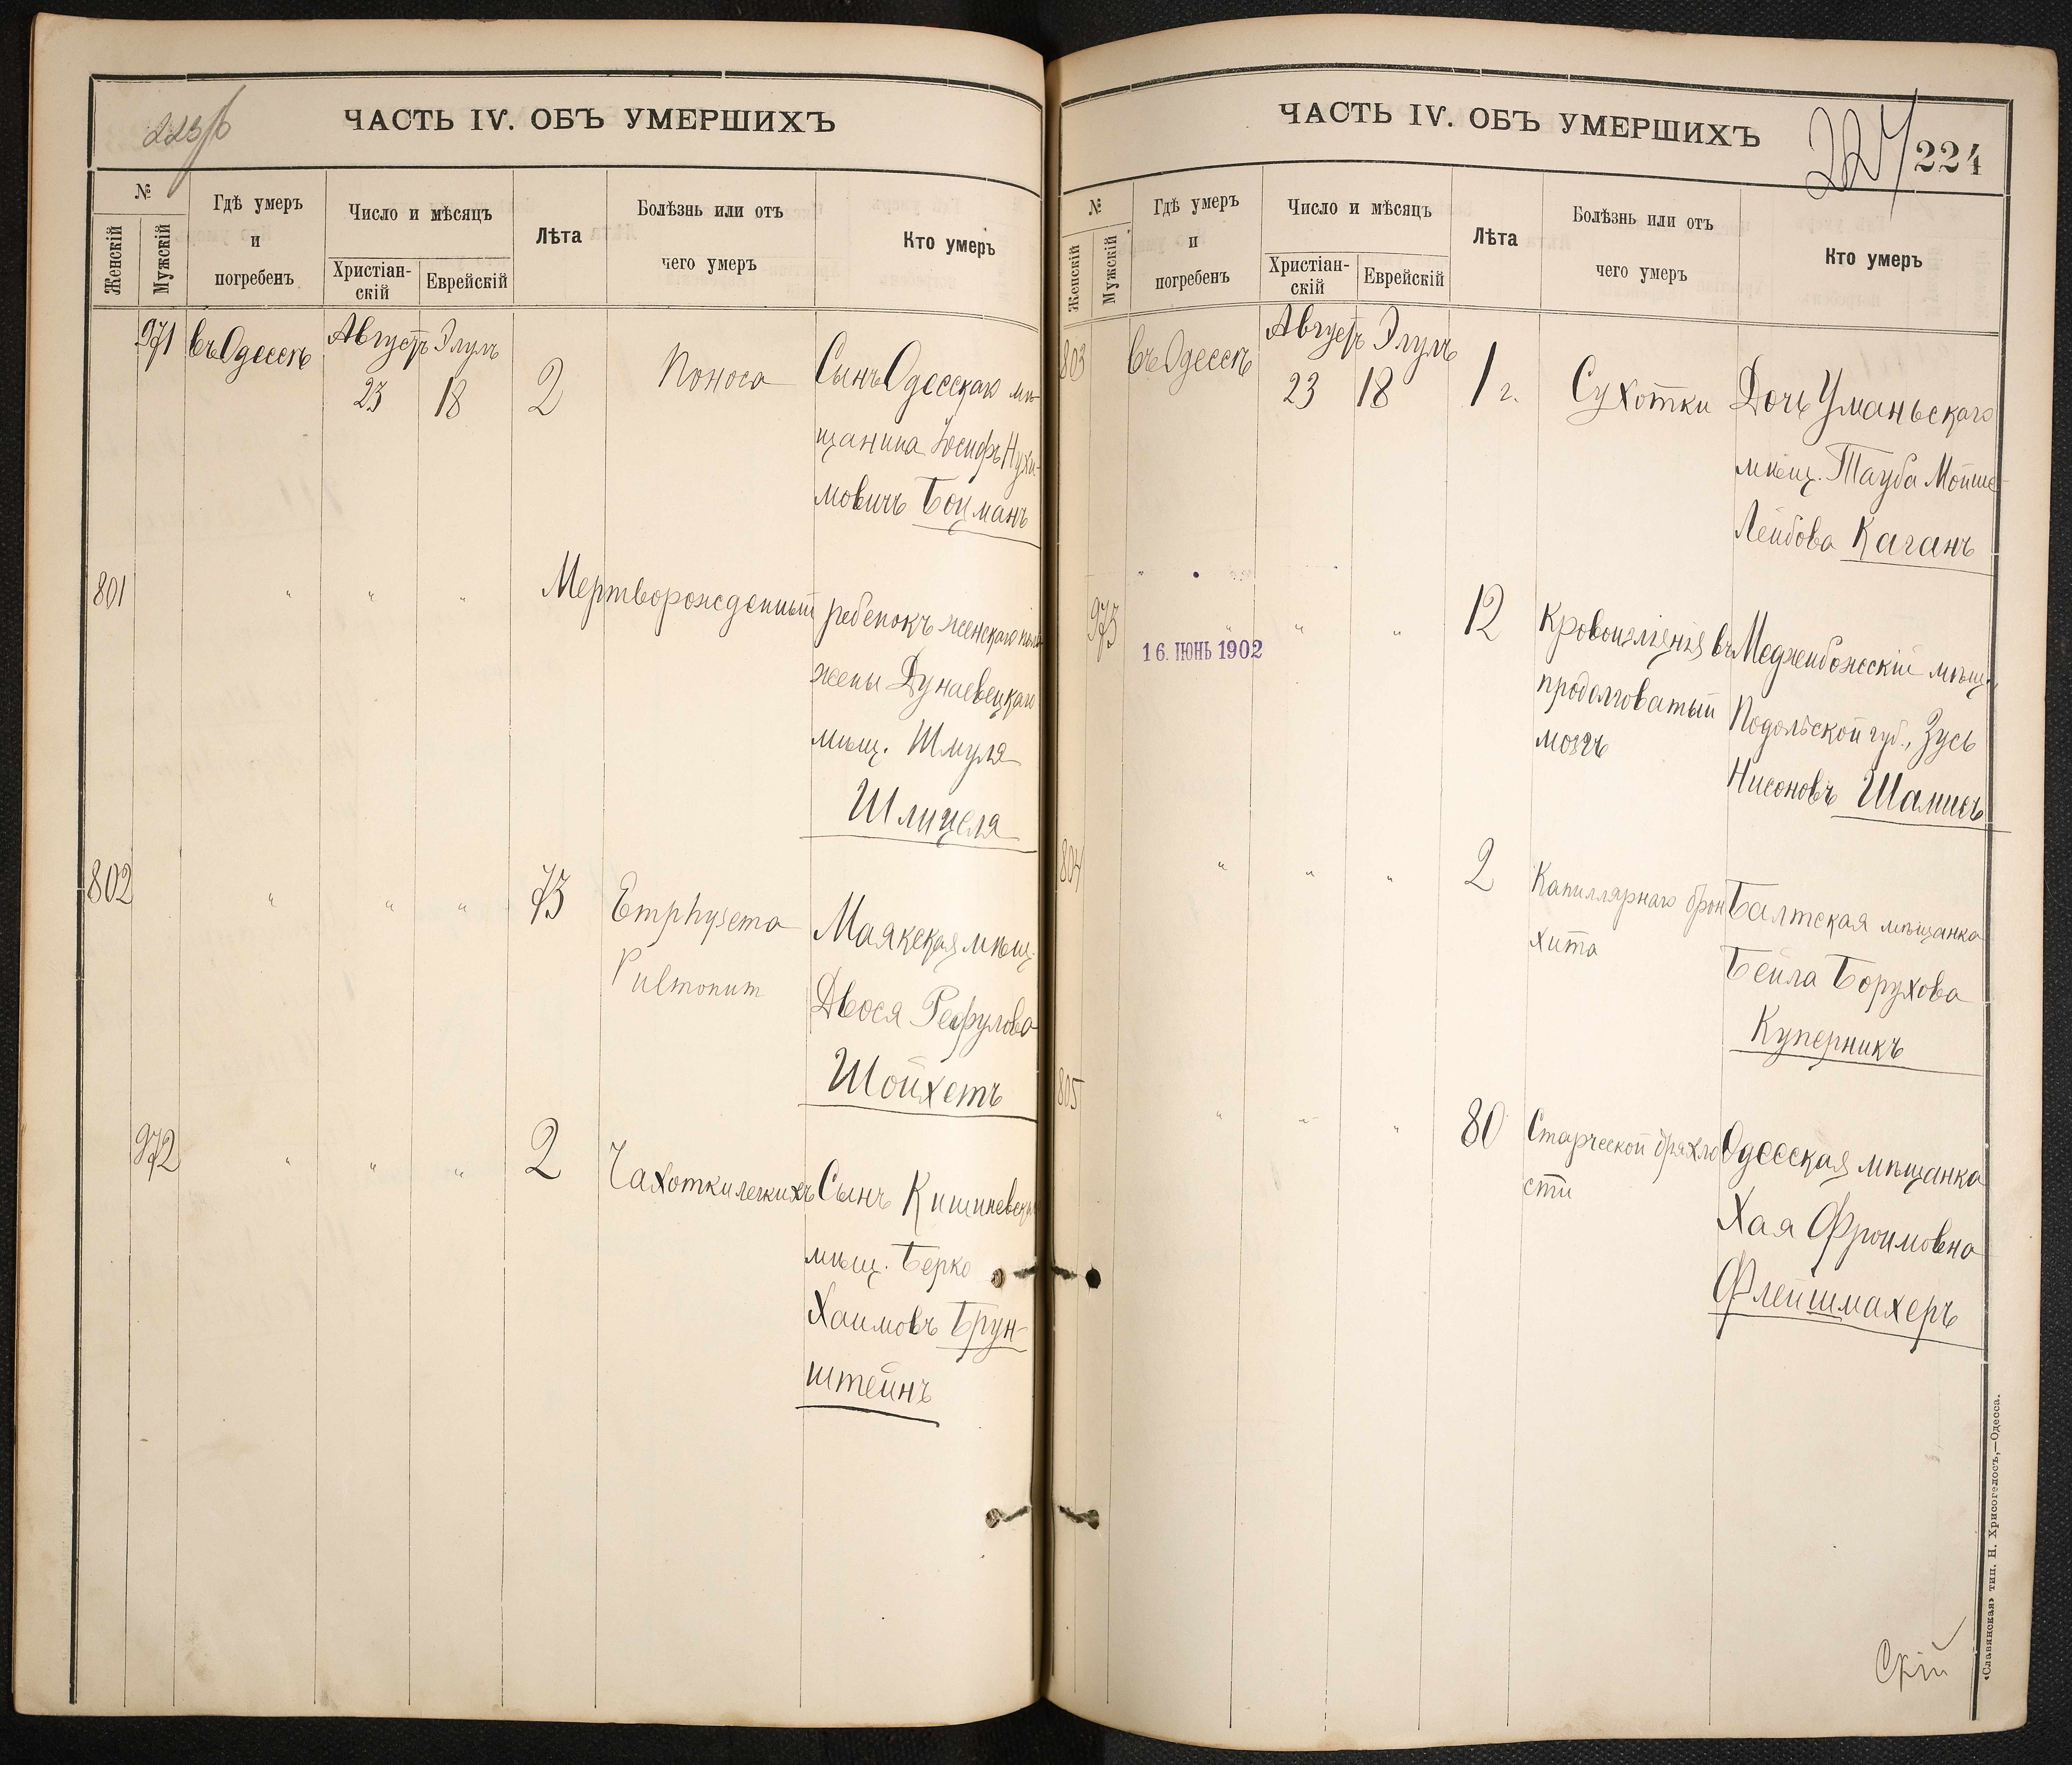 223/б
ЧАСТЬ IV. ОБЪ УМЕРШИХЪ
№
Женскій
Мужскій
Гдѣ умеръ
и
погребенъ
Число и мѣсяцъ
Христіан-
скій
Еврейскій
Лѣта
Болѣзнь или отъ
чего умеръ
Кто умеръ
971 въ Одессѣ Августъ Элулъ
23 18 2 Поноса Сынъ Одесскаго мѣ-
щанина Іосифъ Нухи-
мовичъ Боцманъ
801 " " " Мертворожденный ребенокъ женскаго пола
жены Дунаевецкаго
мѣщ. Шмуля
Шлицеля
802 " " " 73 Emphysema Маякская мѣщ.
Pulmonum Двося Рефулова
Шойхетъ
972 " " " 2 Чахотки легкихъ Сынъ Кишиневскаго
мѣщ. Берко
Хаимовъ Брун-
штейнъ
ЧАСТЬ IV. ОБЪ УМЕРШИХЪ
224/
224
№
Женскій
Мужскій
Гдѣ умеръ
и
погребенъ
Число и мѣсяцъ
Христіан-
скій
Еврейскій
Лѣта
Болѣзнь или отъ
чего умеръ
Кто умеръ
803 въ Одессѣ Августъ Элулъ
23 18 1 г. Сухотки Дочь Уманьскаго
мѣщ. Тауба Мойше-
Лейбова Каганъ
973 " " " 12 Кровоизліянія въ Меджибожскій мѣщ.
16. ІЮНЬ 1902
продолговатый Подольской губ., Зусь
мозгъ Нисоновъ Шамисъ
804 " " " 2 Капиллярнаго брон Балтская мѣщанка
хита Бейла Борухова
Куперникъ
805 " " " 80 Старческой дряхло Одесская мѣщанка
сти Хая Фроимовна
Флейшмахеръ
«Славянская» тип. Н. Хрисогелосъ,—Одесса.